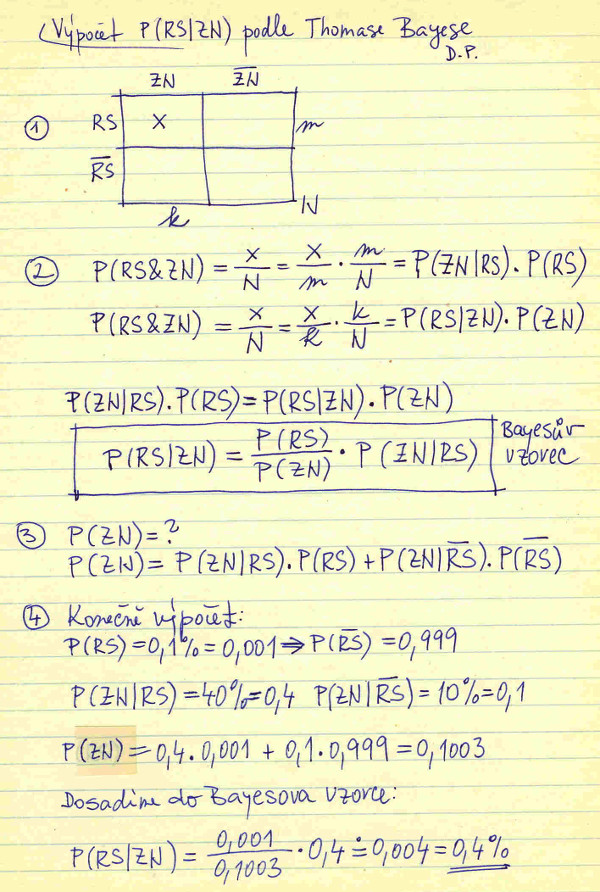 Výpočet P(RS|ZN) podle Thomase Bayese
D.P.
ZN Z̅N̅
① RS X m
R̅S̅
k N
② P(RS&ZN) = x/N = x/m · m/N = P(ZN|RS) . P(RS)
P(RS&ZN) = x/N = x/k · k/N = P(RS|ZN) . P(ZN)
P(ZN|RS) . P(RS) = P(RS|ZN) . P(ZN)
P(RS|ZN) = P(RS)/P(ZN) · P(ZN|RS) Bayesův
vzorec
③ P(ZN) = ?
P(ZN) = P(ZN|RS) . P(RS) + P(ZN|R̅S̅) . P(R̅S̅)
④ Konečně výpočet:
P(RS) = 0,1% = 0,001 ⇒ P(R̅S̅) = 0,999
P(ZN|RS) = 40% = 0,4 P(ZN|R̅S̅) = 10% = 0,1
P(ZN) = 0,4 . 0,001 + 0,1 . 0,999 = 0,1003
Dosadíme do Bayesova vzorce:
P(RS|ZN) = 0,001/0,1003 · 0,4 ≐ 0,004 = 0,4%